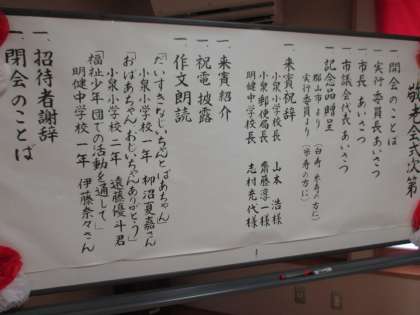 敬老式次第
一 開会のことば
一 実行委員長 あいさつ
一 市長 あいさつ
一 市議会代表 あいさつ
一 記念品贈呈
郡山市より(白寿・米寿の方に)
実行委員より(米寿の方に)
一 来賓祝辞
小泉小学校長 山本 浩様
小泉郵便局長 齋藤淳一様
明健中学校長 志村充代様
一 来賓紹介
一 祝電披露
一 作文朗読
「だいすきなじいちんとばあちゃん」
小泉小学校一年 柳沼夏嘉さん
「おばあちゃんおじいちゃんありがとう」
小泉小学校二年 遠藤優斗君
「福祉少年団での活動を通して」
明健中学校一年 伊藤奈々さん
一 招待者謝辞
一 閉会のことば